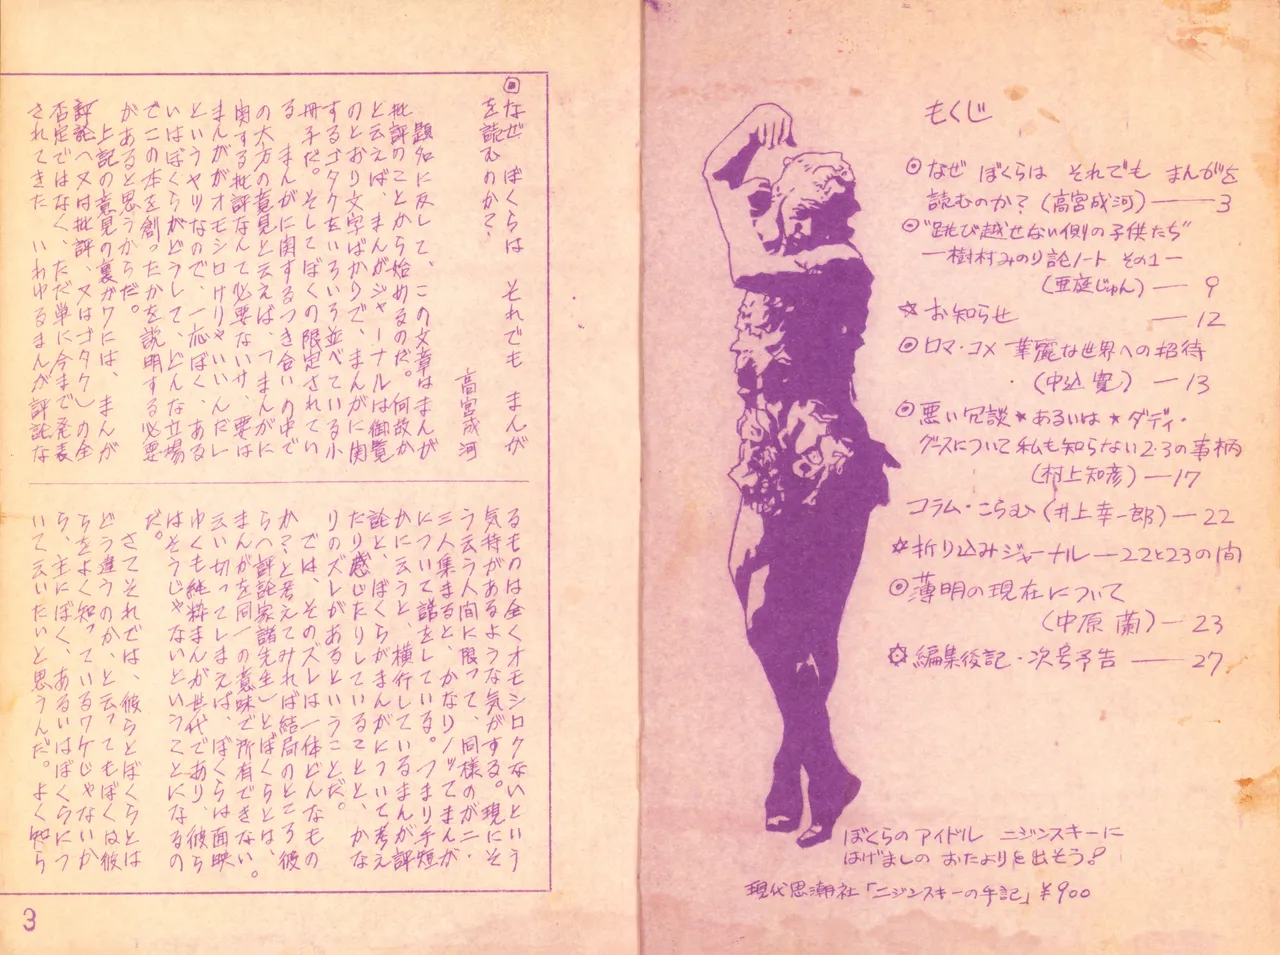 もくじ
◎なぜ ぼくらは それでも まんがを
読むのか?(高宮成河)――3
◎"跳び越せない側の子供たち"
―樹村みのり論ノート その1―
(亜庭じゅん)― 9
☆お知らせ ―12
◎ロマ・コメ 華麗な世界への招待
(中込 寛)―13
◎悪い冗談★あるいは★ダディ・
グースについて私も知らない2・3の事柄
(村上知彦)―17
コラム・こらむ(井上幸一郎)―22
☆折り込みジャーナル―22と23の間
◎薄明の現在について
(中原 蘭)―23
✡編集後記・次号予告 ――27
ぼくらのアイドル ニジンスキーに
はげましの おたよりを出そう。
現代思潮社「ニジンスキーの手記」¥900
◎なぜ ぼくらは それでも まんが
を読むのか?
高宮成河
題名に反して、この文章はまんが
批評のことから始めるのだ。何故か
と云えば、まんがジャーナルは御覧
のとおり文字ばかりで、まんがに関
するゴタクをいろいろ並べている小
冊子だ。そしてぼくの限定されてい
る、まんがに関するつき合いの中で
の大方の意見と云えば、「まんがに
関する批評なんて必要ないサ、要は
まんががオモシロけりゃいいんだレ
というヤツなので、一応ぼく、ある
いはぼくらがどうして、どんな立場
でこの本を創ったかを説明する必要
があると思うからだ。
上記の意見の裏がワには、まんが
評論(又は批評、又はゴタク)の全
否定ではなく、ただ単に今まで発表
されてきた いわゆるまんが評論な
るものは全くオモシロクないという
気持があるような気がする。現にそ
う云う人間に限って、同様のが二・
三人集まると、かなりノッてまんが
について話をしている。つまり手短
かに云うと、横行しているまんが評
論と、ぼくらがまんがについて考え
たり感じたりしていることと、かな
りのズレがあるということだ。
では、そのズレは一体どんなもの
か?と考えてみれば結局のところ彼
ら(評論家諸先生)とぼくらとは、
まんがを同一の意味で所有できない。
云い切ってしまえば、ぼくらは面映
ゆくも純粋まんが世代であり、彼ら
はそうじゃないということになるの
だ。
さてそれでは、彼らとぼくらとは
どう違うのか、と云ってもぼくは彼
らをよく知っているワケじゃないか
ら、主にぼく、あるいはぼくらにつ
いて云いたいと思うんだ。よく知ら
3